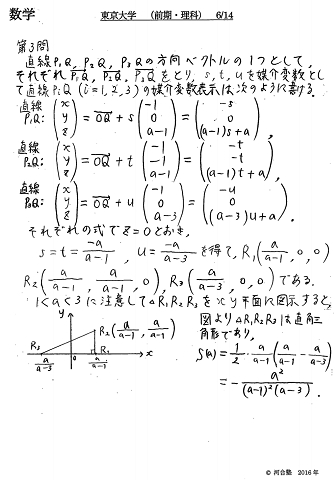 数学 東京大学 (前期・理科) 6/14
第3問
直線P₁Q, P₂Q, P₃Qの方向ベクトルの1つとして,
それぞれ P₁Q, P₂Q, P₃Q をとり, s, t, u を媒介変数とし
て直線PᵢQ (i=1,2,3) の媒介変数表示は次のように書ける.
直線P₁Q: (x y z) = OQ + s(-1 0 a-1) = (-s 0 (a-1)s+a),
直線P₂Q: (x y z) = OQ + t(-1 -1 a-1) = (-t -t (a-1)t+a),
直線P₃Q: (x y z) = OQ + u(-1 0 a-3) = (-u 0 (a-3)u+a).
それぞれの式で z=0 とおき,
s=t= -a/(a-1), u= -a/(a-3) を得て, R₁(a/(a-1), 0, 0)
R₂(a/(a-1), a/(a-1), 0), R₃(a/(a-3), 0, 0) である.
1<a<3 に注意して△R₁R₂R₃を xy 平面に図示すると,
y R₂(a/(a-1), a/(a-1))
R₃ R₁ x
a/(a-3) 0 a/(a-1)
図より△R₁R₂R₃は直角三
角形であり,
S(a) = 1/2 · a/(a-1) (a/(a-1) - a/(a-3))
= - a²/((a-1)²(a-3)).
© 河合塾 2016年